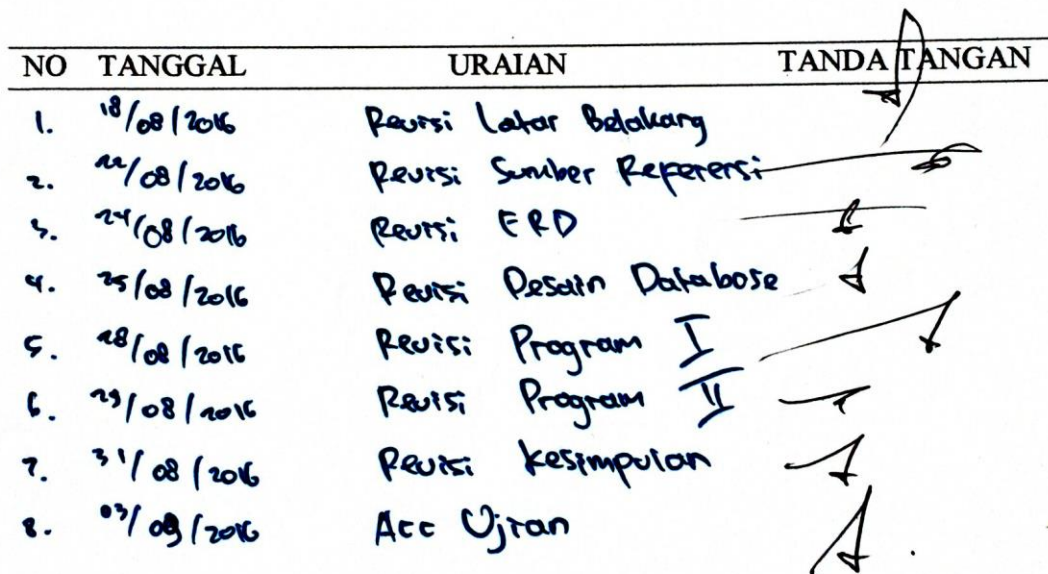 NO TANGGAL URAIAN TANDA TANGAN
1. 18/08/2016 Revisi Latar Belakang
2. 22/08/2016 Revisi Sumber Referensi
3. 24/08/2016 Revisi ERD
4. 25/08/2016 Revisi Desain Database
5. 28/08/2016 Revisi Program I
6. 29/08/2016 Revisi Program II
7. 31/08/2016 Revisi Kesimpulan
8. 03/09/2016 Acc Ujian